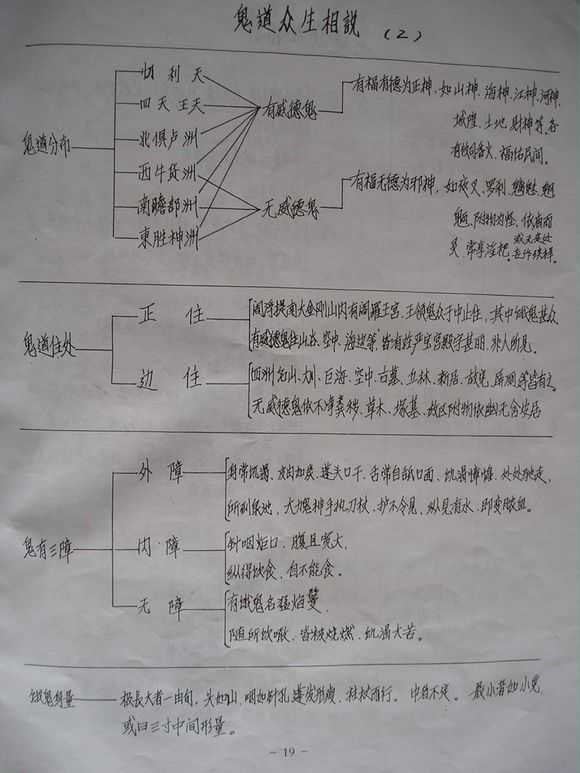 鬼道众生相説 (2)
鬼道分布
忉利天
四天王天
北俱卢洲
西牛货洲
南瞻部洲
東胜神洲
有威德鬼
无威德鬼
有福有德为正神、如山神、海神、江神、河神、
城隍、土地、财神等、各
有福佑民间。
有福无德为邪神、如夜叉、罗刹、魑魅、魍
魉、附物为怪、依
常享淫祀。
鬼道住处
正住
阎浮提南大金刚山内有阎羅王宫、王领鬼众于中止住、其中饿鬼甚众、
有威德鬼住山谷、空中、海边等、皆有庄严宝宫殿宇甚丽、非人所见。
边住
四洲 山、大川、巨海、空中、古墓、丘林、
无威德鬼依不净粪秽、草木、塚墓、故区附物依幽无舍安居
鬼有三障
外障
身常饥渴、皮肉 、蓬头口干、舌常自舐口面、饥渴慞惶、处处驰走、
所到泉池、大 鬼神手执刀杖、护不令見、纵见有水、即变脓血。
内障
针咽炬口、腹且宽大、
纵得饮食、自不能食。
无障
有饿鬼名猛焰鬘、
随所饮噉、皆被烧燃、饥渴大苦。
饿鬼身量
极長大者一由旬、头如山、咽如针孔、蓬发 瘦、柱杖而行。中者不定。最小者如小兒
或曰三寸中间形量。
- 19 -